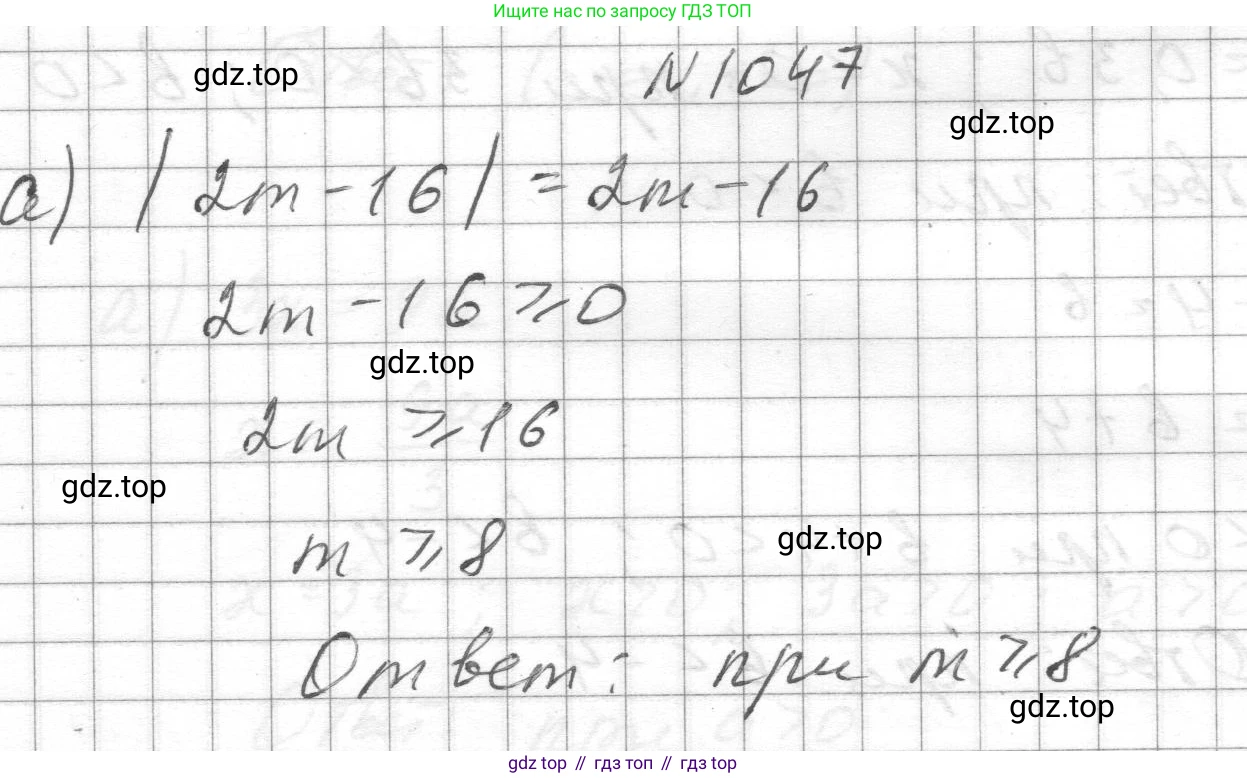 Ищите нас по запросу ГДЗ ТОП
gdz.top
N 1047
gdz.top
а) |2m - 16| = 2m - 16
2m - 16 ⩾ 0
gdz.top
2m ⩾ 16
gdz.top
m ⩾ 8
gdz.top
Ответ: при m ⩾ 8
gdz.top
gdz top // гдз топ // gdz top